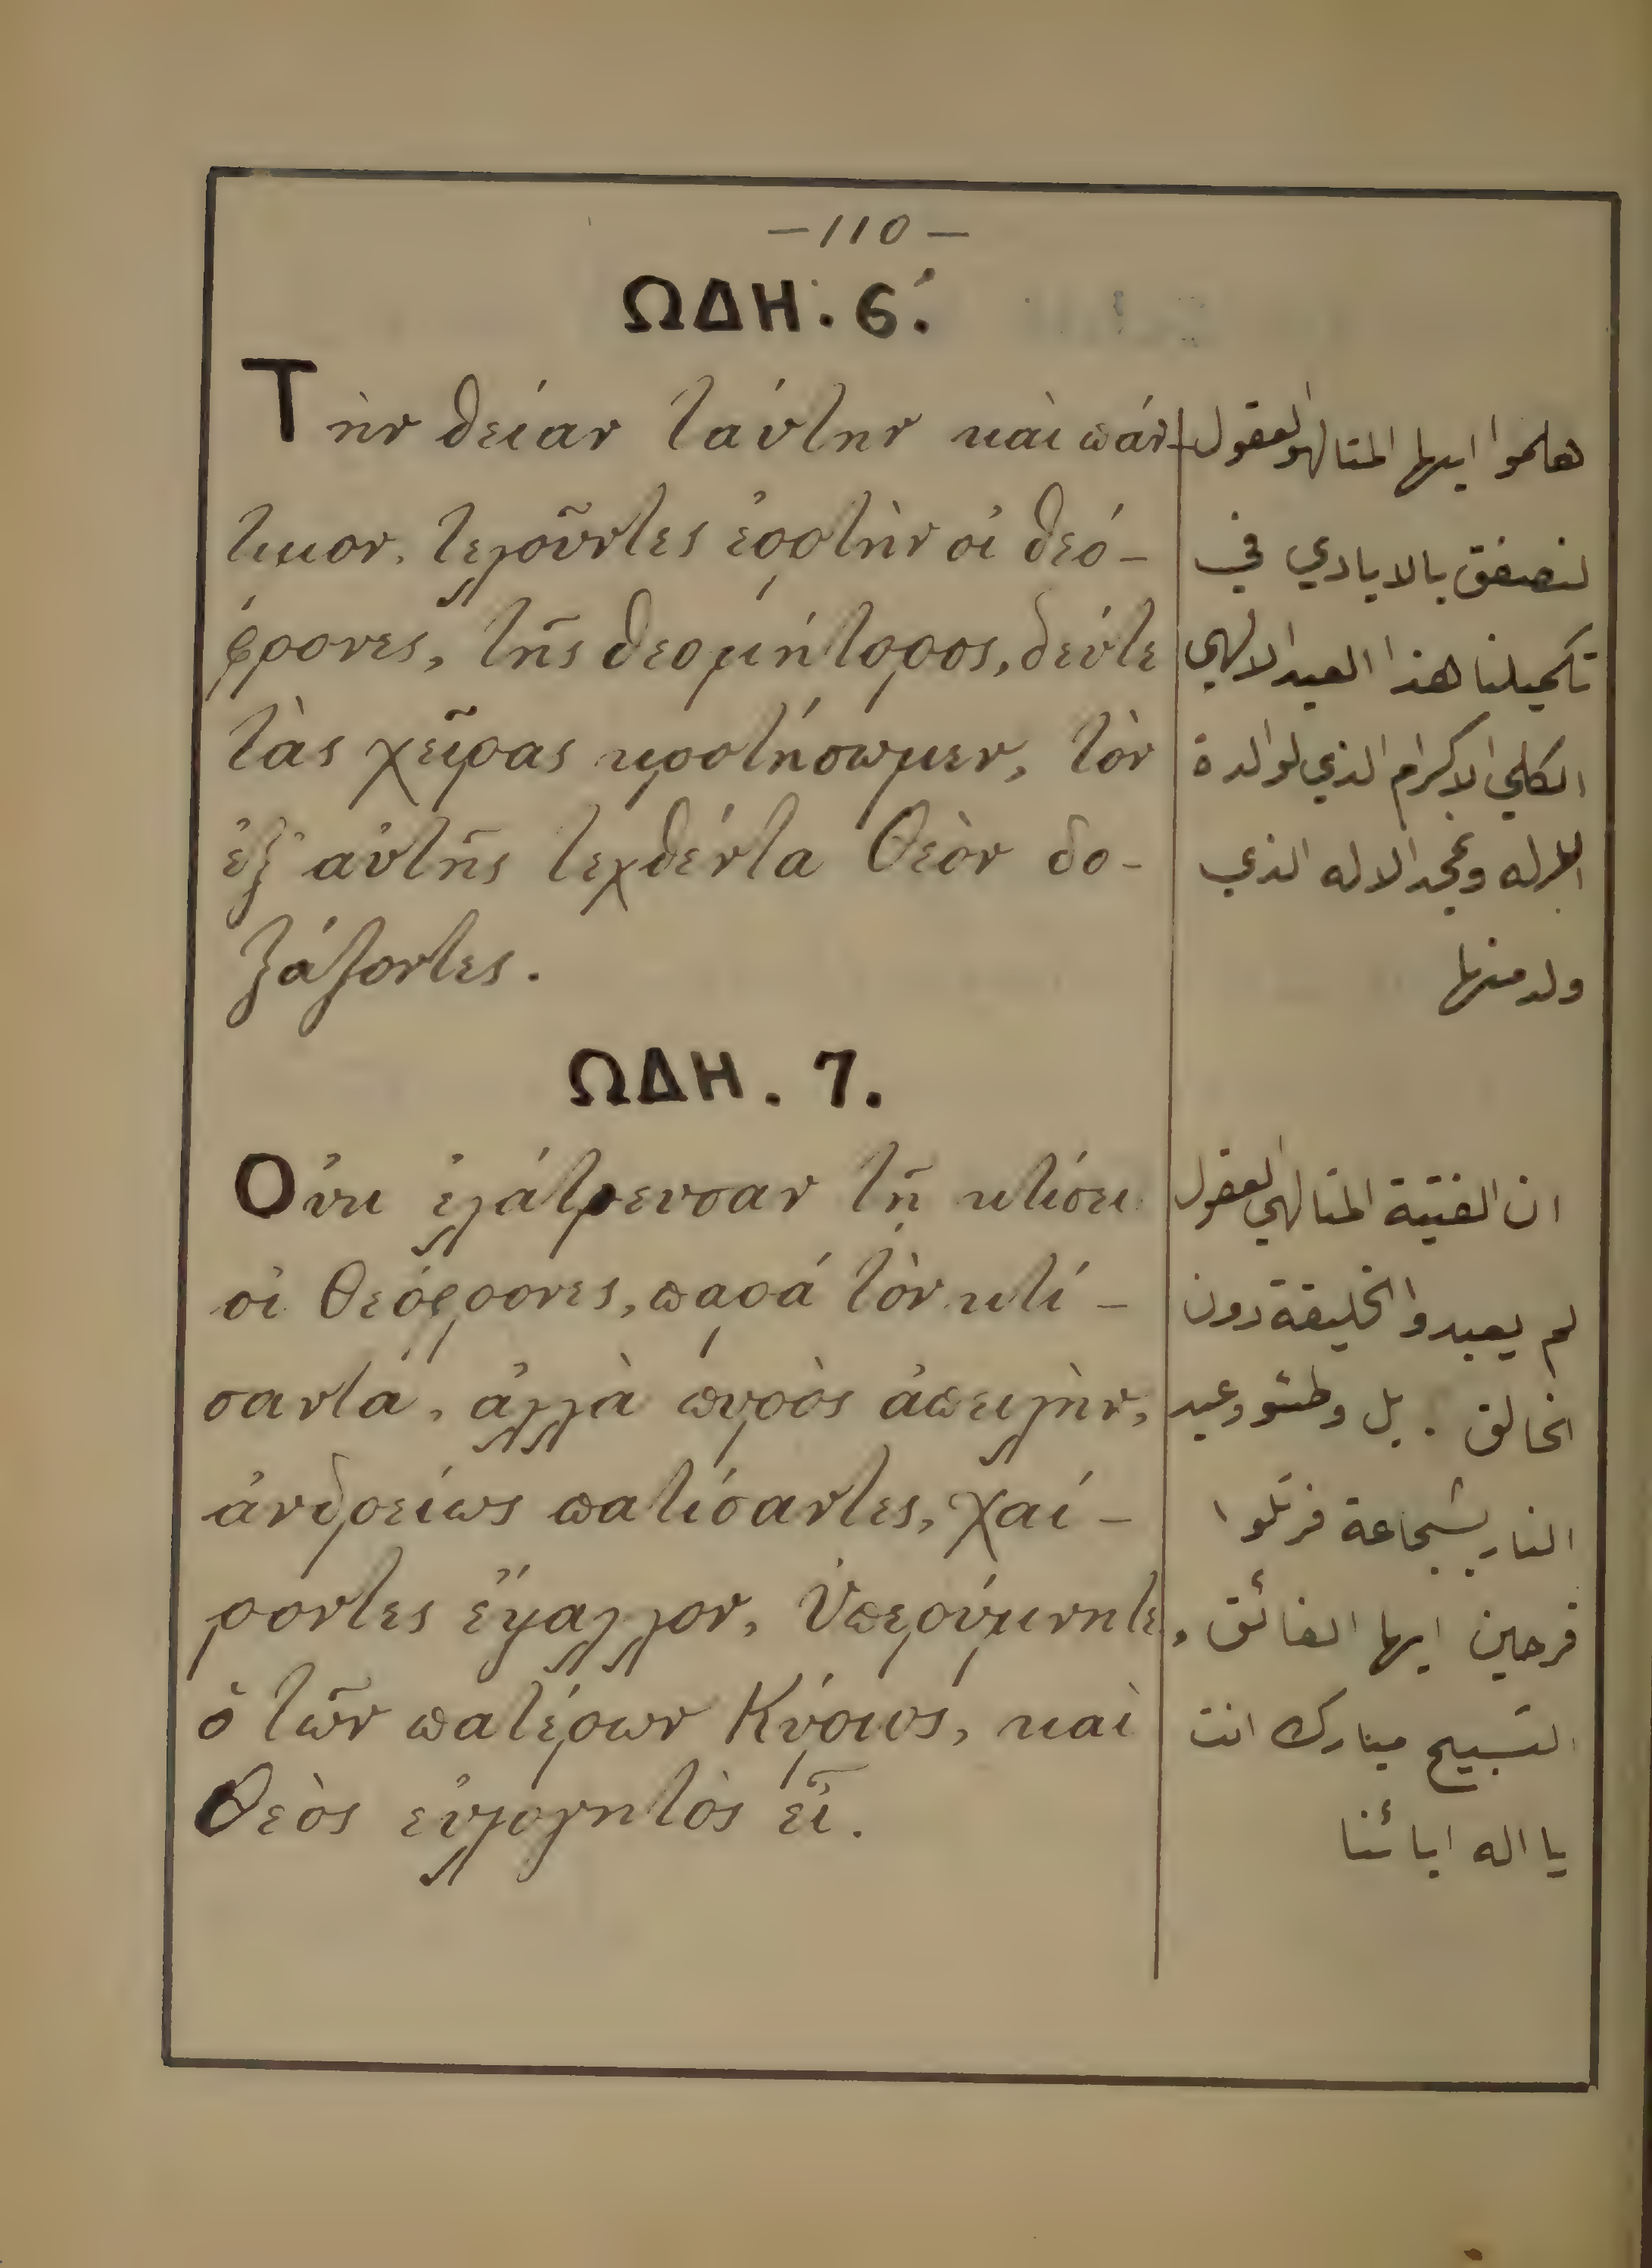 —110—
ΩΔΗ. 6.
Τὴν θείαν ταύτην καὶ πάν-
τιμον, τελοῦντες ἑορτὴν οἱ θεό-
φρονες, τῆς θεομήτορος, δεύτε
τὰς χεῖρας κροτήσωμεν, τὸν
ἐξ αὐτῆς τεχθέντα Θεὸν δο-
ξάζοντες.
هلموا ايها المتالهو العقول
لنصفق بالايادي في
تكميلنا هذا العيد الالهي
الكلي الاكرام الذي لوالدة
الاله ونمجد الاله الذي
ولد منها
ΩΔΗ. 7.
Οὐκ ἐλάτρευσαν τῇ κτίσει
οἱ Θεόφρονες, παρά τὸν κτί-
σαντα, ἀλλὰ πυρὸς ἀπειλὴν,
ἀνδρείως πατίσαντες, χαί-
ροντες ἔψαλλον, Ὑπερούμνητε,
ὁ τῶν πατέρων Κύριος, καὶ
Θεὸς εὐλογητὸς εἶ.
ان الفتية المتالهي العقول
لم يعبدوا الخليقة دون
الخالق . بل وطئو وعيد
النار بشجاعة فرتلوا
فرحين ايها الفائق
التسبيح مبارك انت
يا اله ابائنا